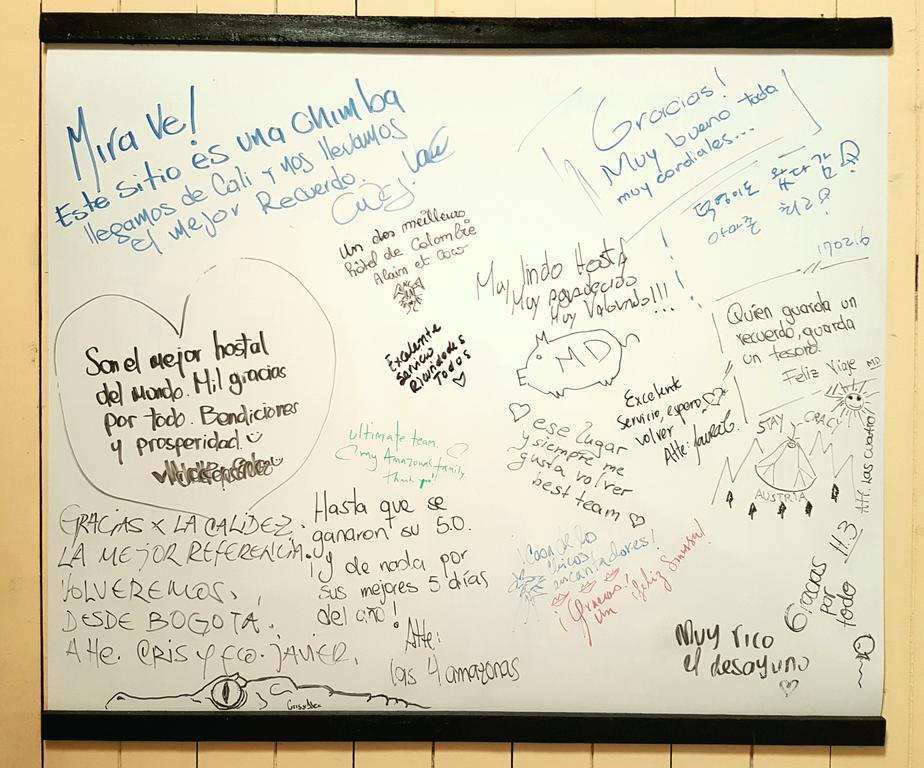 Mira Ve!
Este sitio es una chimba
llegamos de Cali y nos llevamos
el mejor Recuerdo.
Gracias!
Muy bueno todo
muy cordiales...
170216
Un des meilleurs
hôtel de Colombie
Alain et Coco
Muy lindo Hostal
Muy agradecido
Muy Valorado!!!
MD
Quien guarda un
recuerdo, guarda
un tesoro.
Feliz Viaje MD
Son el mejor hostal
del mundo. Mil gracias
por todo. Bendiciones
y prosperidad.
Excelente
Servicio
Ricundodos
Todos
Excelente
Servicio, espero
volver
Atte: Laura G.
ese lugar
y siempre me
gusta volver
best team
STAY CRAZY
AUSTRIA
Att. Las cuatro
ultimate team.
my Amazonas family.
Thank you!
GRACIAS X LA CALIDEZ.
LA MEJOR REFERENCIA.
VOLVEREMOS.
DESDE BOGOTA.
Atte. CRIS Y FCO. JAVIER.
Hasta que se
ganaron su 5.0.
¡y de nada por
sus mejores 5 días
del año!
Atte:
las 4 amazonas
¡Gracias!
Muy rico
el desayuno
Gracias
por
todo
H.3